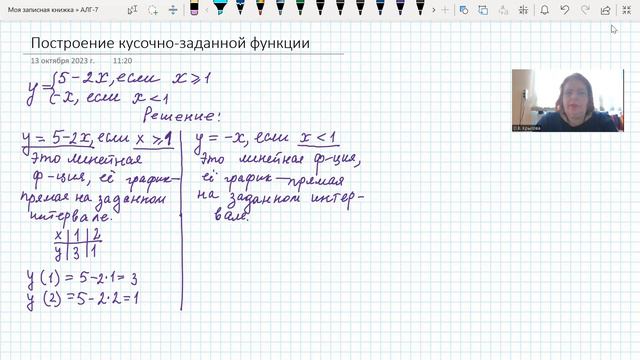 Моя записная книжка » АЛГ-7
Построение кусочно-заданной функции
13 октября 2023 г. 11:20
y = { 5 - 2x, если x ⩾ 1
-x, если x < 1
Решение:
y = 5-2x, если x ⩾ 1
Это линейная
ф-ция, её график –
прямая на заданном
интервале.
x | 1 | 2
y | 3 | 1
y (1) = 5-2·1 = 3
y (2) = 5-2·2 = 1
y = -x, если x < 1
Это линейная ф-ция,
её график – прямая
на заданном интер-
вале.
О.В. Крылова